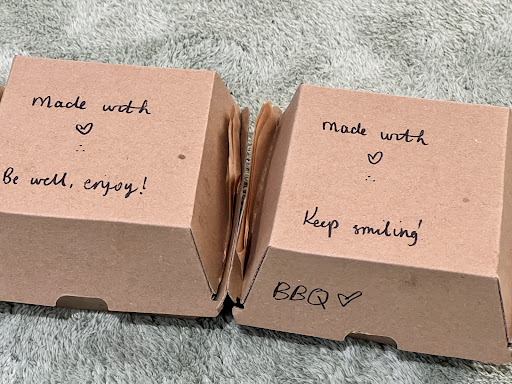 made with
♡
∴
Be well, enjoy!
made with
♡
∴
Keep smiling!
BBQ ✓